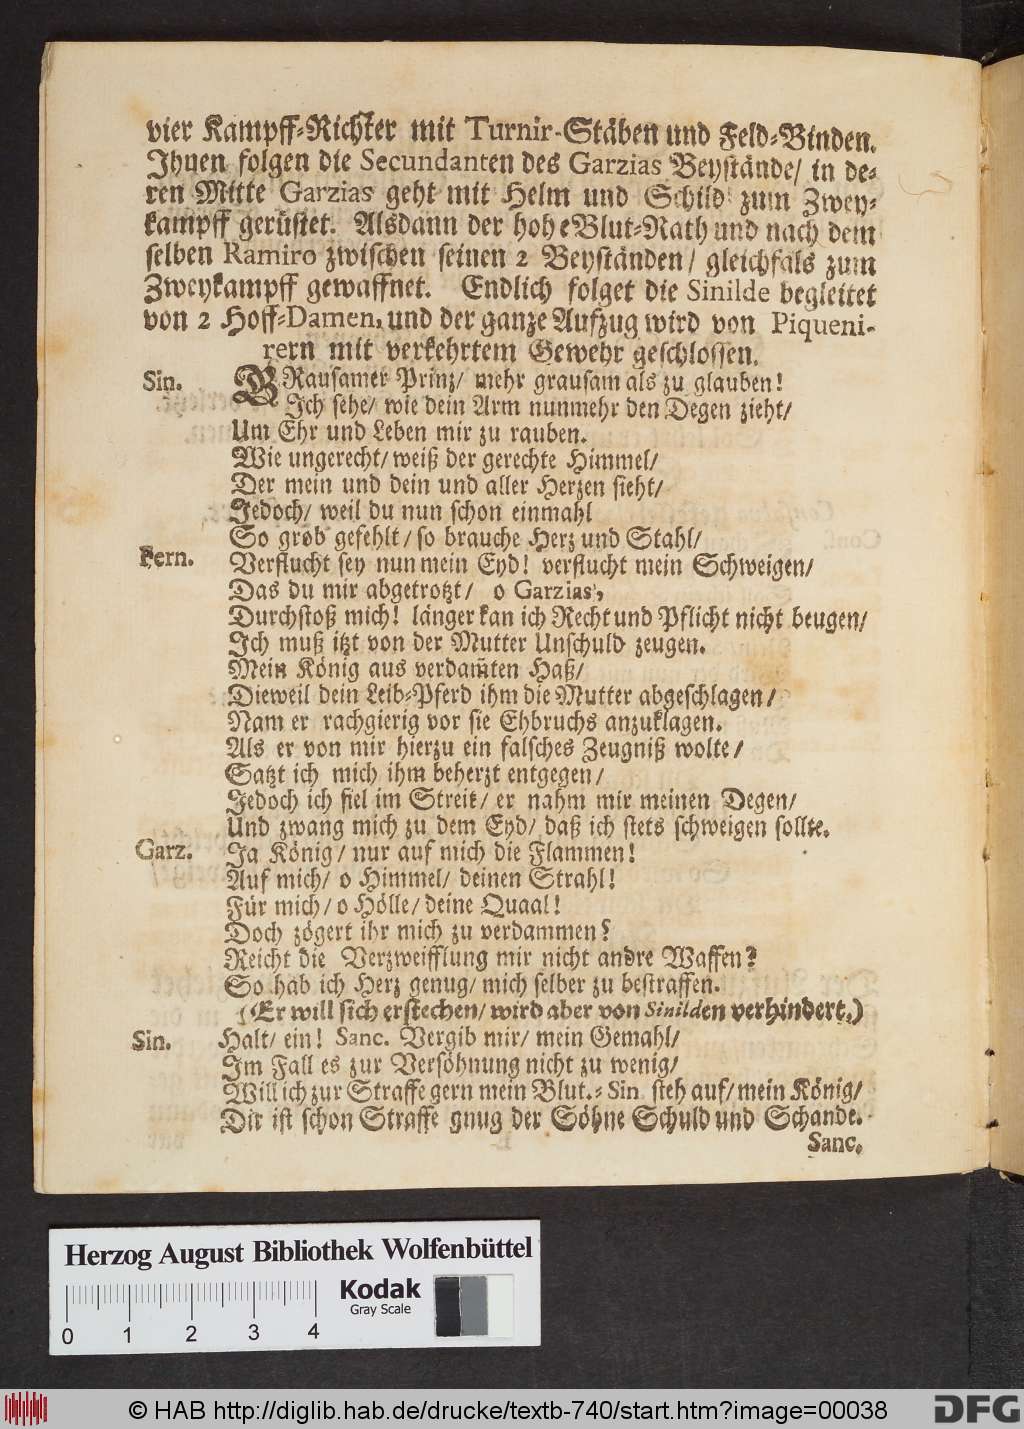 vier Kampff-Richter mit Turnir-Stäben und Feld-Binden.
Ihnen folgen die Secundanten des Garzias Beystände/ in de-
ren Mitte Garzias geht mit Helm und Schild zum Zwey-
kampff gerüstet. Alsdann der hohe Blut-Rath und nach dem
selben Ramiro zwischen seinen 2 Beyständen/ gleichfals zum
Zweykampff gewaffnet. Endlich folget die Sinilde begleitet
von 2 Hoff-Damen, und der ganze Aufzug wird von Piqueni-
rern mit verkehrtem Gewehr geschlossen.
Sin. GRausamer Prinz/ mehr grausam als zu glauben!
Ich sehe/ wie dein Arm nunmehr den Degen zieht/
Um Ehr und Leben mir zu rauben.
Wie ungerecht/ weiß der gerechte Himmel/
Der mein und dein und aller Herzen sieht/
Jedoch/ weil du nun schon einmahl
So grob gefehlt/ so brauche Herz und Stahl/
Fern. Verflucht sey nun mein Eyd! verflucht mein Schweigen/
Das du mir abgetrotzt/ o Garzias,
Durchstoß mich! länger kan ich Recht und Pflicht nicht beugen/
Ich muß itzt von der Mutter Unschuld zeugen.
Mein König aus verdam̄ten Haß/
Dieweil dein Leib-Pferd ihm die Mutter abgeschlagen/
Nam er rachgierig vor sie Ehbruchs anzuklagen.
Als er von mir hierzu ein falsches Zeugniß wolte/
Satzt ich mich ihm beherzt entgegen/
Jedoch ich fiel im Streit/ er nahm mir meinen Degen/
Und zwang mich zu dem Eyd/ daß ich stets schweigen sollte.
Garz. Ja König/ nur auf mich die Flammen!
Auf mich/ o Himmel/ deinen Strahl!
Für mich/ o Hölle/ deine Quaal!
Doch zögert ihr mich zu verdammen?
Reicht die Verzweifflung mir nicht andre Waffen?
So hab ich Herz genug/ mich selber zu bestraffen.
(Er will sich erstechen/ wird aber von Sinilden verhindert.)
Sin. Halt/ ein! Sanc. Vergib mir/ mein Gemahl/
Im Fall es zur Versöhnung nicht zu wenig/
Will ich zur Straffe gern mein Blut.- Sin steh auf/ mein König/
Dir ist schon Straffe gnug der Söhne Schuld und Schande.
Sanc.
Herzog August Bibliothek Wolfenbüttel
Kodak
Gray Scale
0 1 2 3 4
© HAB http://diglib.hab.de/drucke/textb-740/start.htm?image=00038
DFG